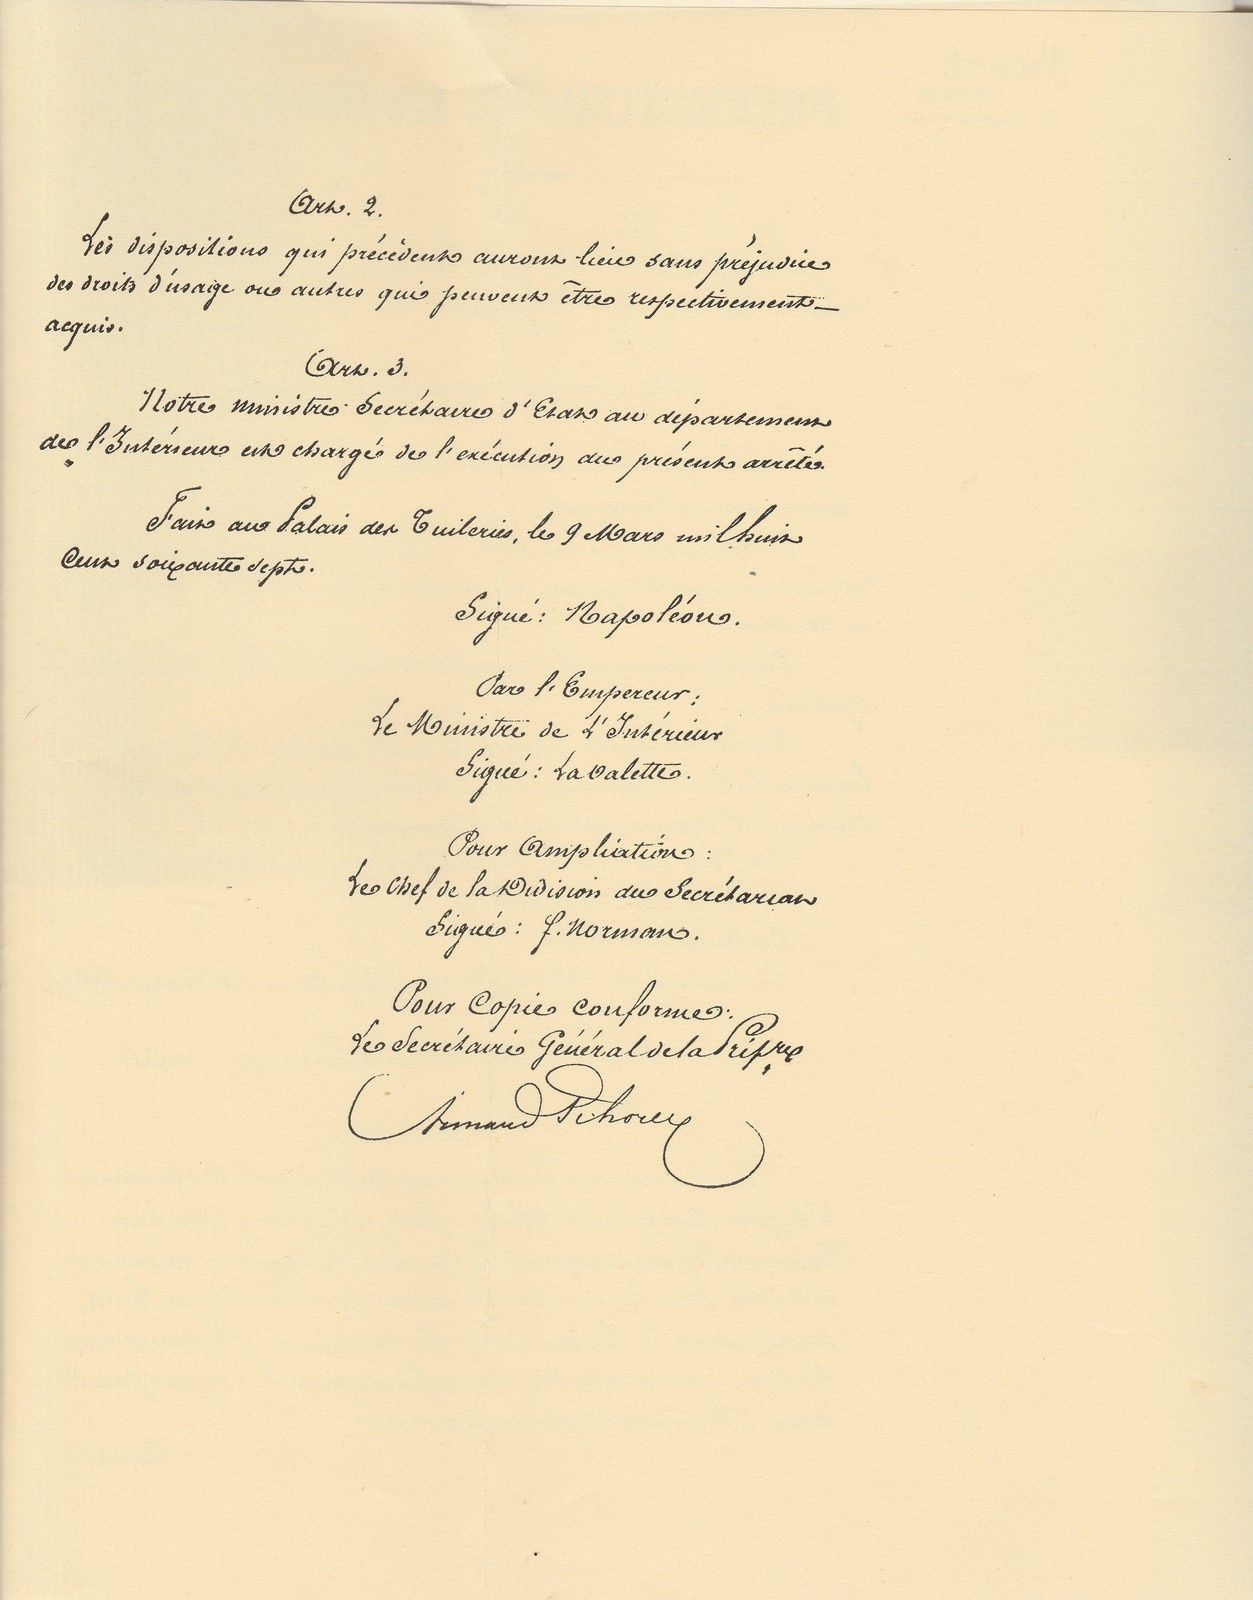 Art. 2.
Les dispositions qui précèdent auront lieu sans préjudice
des droits d'usage ou autres qui peuvent être respectivement
acquis.
Art. 3.
Notre ministre Secrétaire d'Etat au département
de l'Intérieur est chargé de l'exécution du présent arrêté.
Fait au Palais des Tuileries, le 9 Mars mil huit
Cent soixante sept.
Signé: Napoléon.
Par l'Empereur:
Le Ministre de L'Intérieur
Signé: La Valette.
Pour Ampliation:
Le Chef de la Division du Secrétariat
Signé: J. Norman.
Pour Copie conforme:
Le Secrétaire Général de la Préf.re
Armand